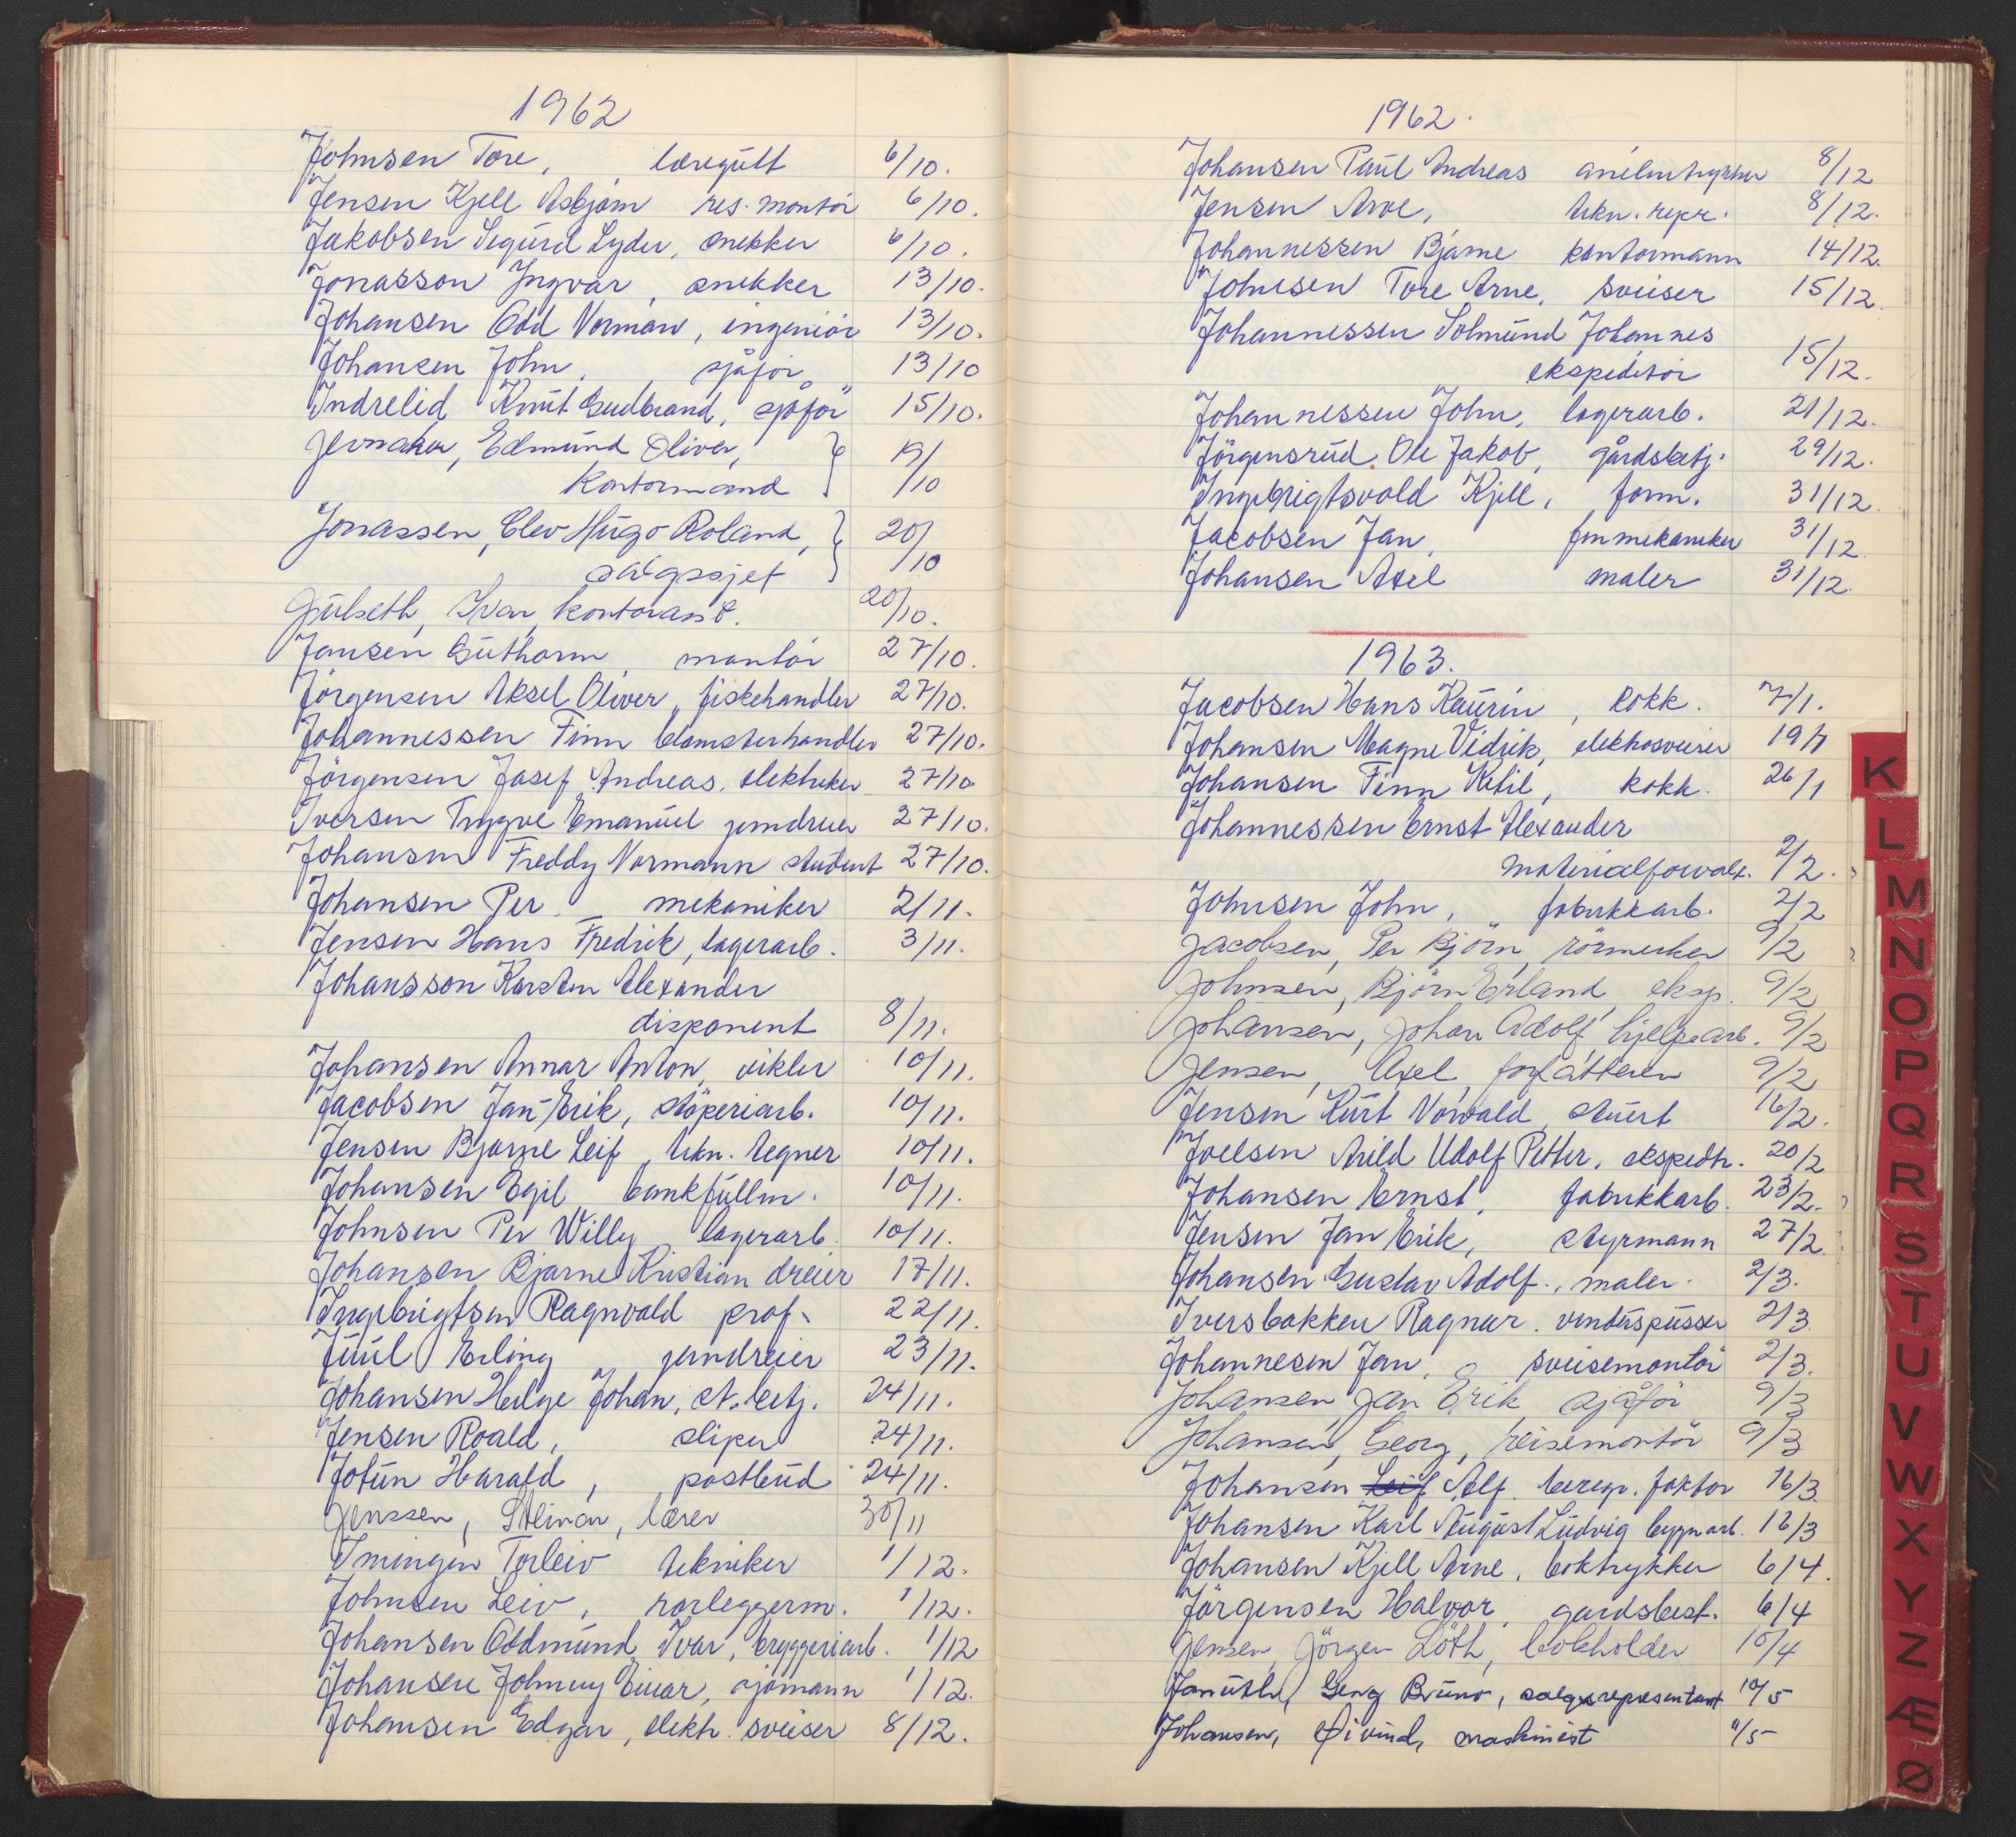 1962
Johnsen Tore, læregutt 6/10.
Jensen Kjell Asbjørn res. montør 6/10.
Jakobsen Sigurd Lyder, snekker 6/10.
Jonasson Yngvar, snekker 13/10.
Johansen Odd Norman, ingeniør 13/10.
Johansen John, sjåfør 13/10
Indrelid Knut Gudbrand, sjåfør 15/10.
Edmund Oliver, 19/
Kontormand /10
Jonassen, Clev Hugo Roland, 20/
salgssjef /10
Julseth, Ivar, kontorass. 20/10.
Jansen Guthorm, montør 27/10.
Jörgensen Aksel Oliver, fiskehandler 27/10.
Johannessen Finn blomsterhandler 27/10.
Jörgensen Josef Andreas, elektriker 27/10.
Iversen Trygve Emanuel jerndreier 27/10.
Johansen Freddy Normann student 27/10.
Johansen Per mekaniker 2/11.
Jensen Hans Fredrik, lagerarb. 3/11.
Johansson Karsten Alexander
disponent 8/11.
Johansen Annar Anton, vikler 10/11.
Jacobsen Jan-Erik, støperiarb. 10/11.
Jensen Bjarne Leif, tekn. tegner 10/11.
Johansen Egil bankfullm. 10/11.
Johnsen Per Willy lagerarb. 10/11.
Johansen Bjarne Kristian dreier 17/11.
Ingebrigtsen Ragnvald prof. 22/11.
Juul Erling jerndreier 23/11.
Johansen Helge Johan, st. betj. 24/11.
Jensen Roald, sliper 24/11.
Jotun Harald, postbud 24/11.
Jenssen, Steinar, lærer 30/11
Imingen Torleiv tekniker 1/12.
Johnsen Leiv, rørleggerm. 1/12.
Johansen Oddmund Ivar, bryggeriarb. 1/12
Johansen Johnny Einar, sjømann 1/12.
Johansen Edgar, elektr. sveiser 8/12.
1962.
Johansen Paul Andreas anilintrykker 8/12
Jensen Arve, tekn. repr. 8/12.
Johannessen Bjarne kontormann 14/12.
Johnsen Tore Arne, sveiser 15/12.
Johannessen Solmund Johannes
ekspeditør 15/12.
Johannessen John, lagerarb. 21/12.
Jörgensrud Ole Jakob, gårdsbetj. 29/12.
Ingebrigtsvold Kjell, form. 31/12.
Jacobsen Jan, finmekaniker 31/12.
Johansen Axel maler 31/12.
1963.
Jacobsen Hans Kaurin, kokk. 7/1.
Johansen Magne Vidrik, elektrosveiser 19/1
Johansen Finn Ketil, kokk. 26/1
Johannessen Ernst Alexander
materialforvalt. 2/2.
Johnsen John, fabrikkarb. 2/2
Jacobsen, Per Björn, rörmerker 9/2
Johnsen, Björn Erland, eksp. 9/2
Johansen, Johan Adolf hjelpearb. 9/2
Jensen, Axel, forfatteren 9/2
Jensen Kurt Norvald, stuert 16/2.
Joelsen Arild Udolf Petter, ekspedtr. 20/2
Johansen Ernst, fabrikkarb. 23/2.
Jensen Jan Erik, styrmann 27/2.
Johansen Gustav Adolf, maler. 2/3.
Iversbakken Ragnar. vinduspusser 2/3.
Johannesen Jan, sveisemontør 2/3.
Johansen, Jan Erik sjåför 9/3
Johansen, Georg, reisemontör 9/3
Johansen Leif Alf. beregn. faktor 16/3
Johansen Karl August Ludvig bygn arb. 16/3
Johansen Kjell Arne, boktrykker 6/4.
Jörgensen Halvor, gardsbest. 6/4
Jensen, Jörgen Löth, bokholder 10/4
Januth, Georg Bruno, salgsrepresentant 10/5
Johansen, Øivind, maskinist 11/5
K
L
M
N
O
P
Q
R
S
T
U
V
W
X
Y
Z
Æ
Ø